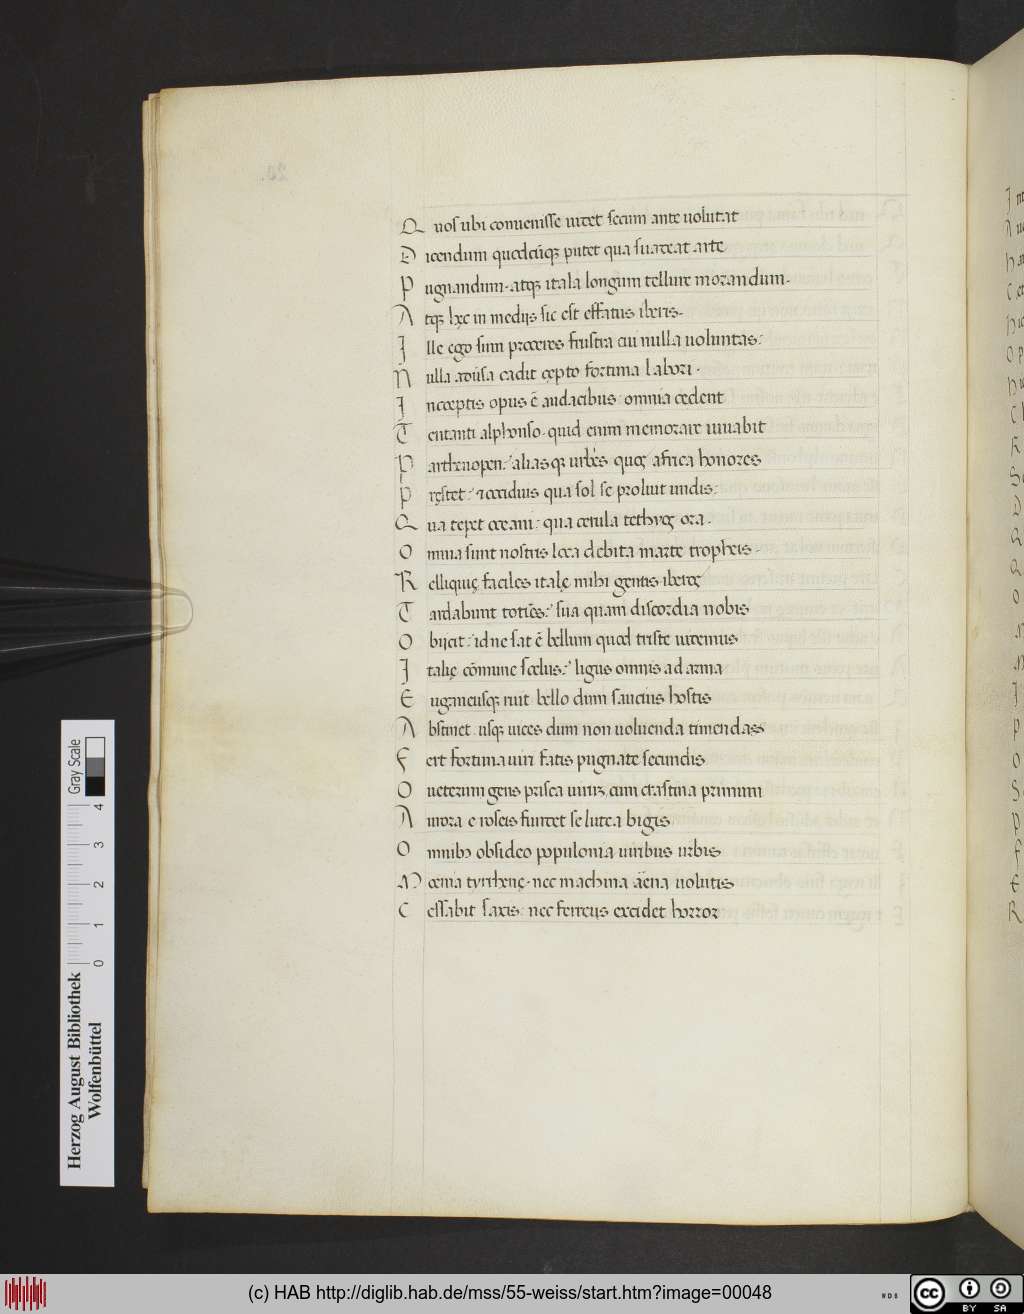 Quos ubi conuenisse uidet secum ante uolutat
Dicendum quodcūqꝫ putet qua suadeat arte
Pugnandum. atqꝫ itala longum tellure morandum.
Atqꝫ hęc in medijs sic est effatus iberis.
Ille ego sum proceres frustra cui nulla uoluntas:
Nulla aduersa cadit cępto fortuna labori.
Inceptis opus ē audacibus. omnia cedent
Tentanti alphonso. quid enim memorare iuuabit
Parthenopen: alias qꝫ urbes. quos africa honores
Pręstet: occiduis qua sol se proluit undis:
Qua tepet oceani: qua cerula tethyos ora.
Omnia sunt nostris loca debita marte tropheis.
Relliquię faciles italę mihi gentis iberos
Tardabunt toties: sua quam discordia nobis
Obijcit: id ne sat ē bellum quod triste uidemus
Italię cōmune scelus: ligus omnis ad arma
Euganeusqꝫ ruit bello dum saucius hostis
Abstinet. usqꝫ uices dum non uoluenda timendas
Fert fortuna uiri fatis pugnate secundis
O ueterum gens prisca uirum cum crastina primum
Aurora e roseis fundet se lutea bigis
Omnibꝫ obsideo populonia uiribus urbis
Moenia tyrrhenę. nec machina aena uolutis
Cessabit saxis. nec ferreus excidet horror
Herzog August Bibliothek
Wolfenbüttel
0 1 2 3 4
Gray Scale
(c) HAB http://diglib.hab.de/mss/55-weiss/start.htm?image=00048
WDB
cc
BY SA